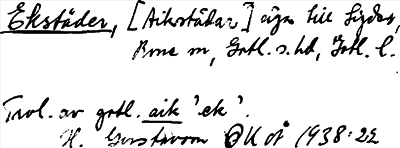 Ekstäder, [Aikstädar] ägn till Sigdes,
Rone sn, Gotl. s. hd, Gotl. l.
Trol. av gotl. aik 'ek'.
H. Gustavson OUÅ 1938:22